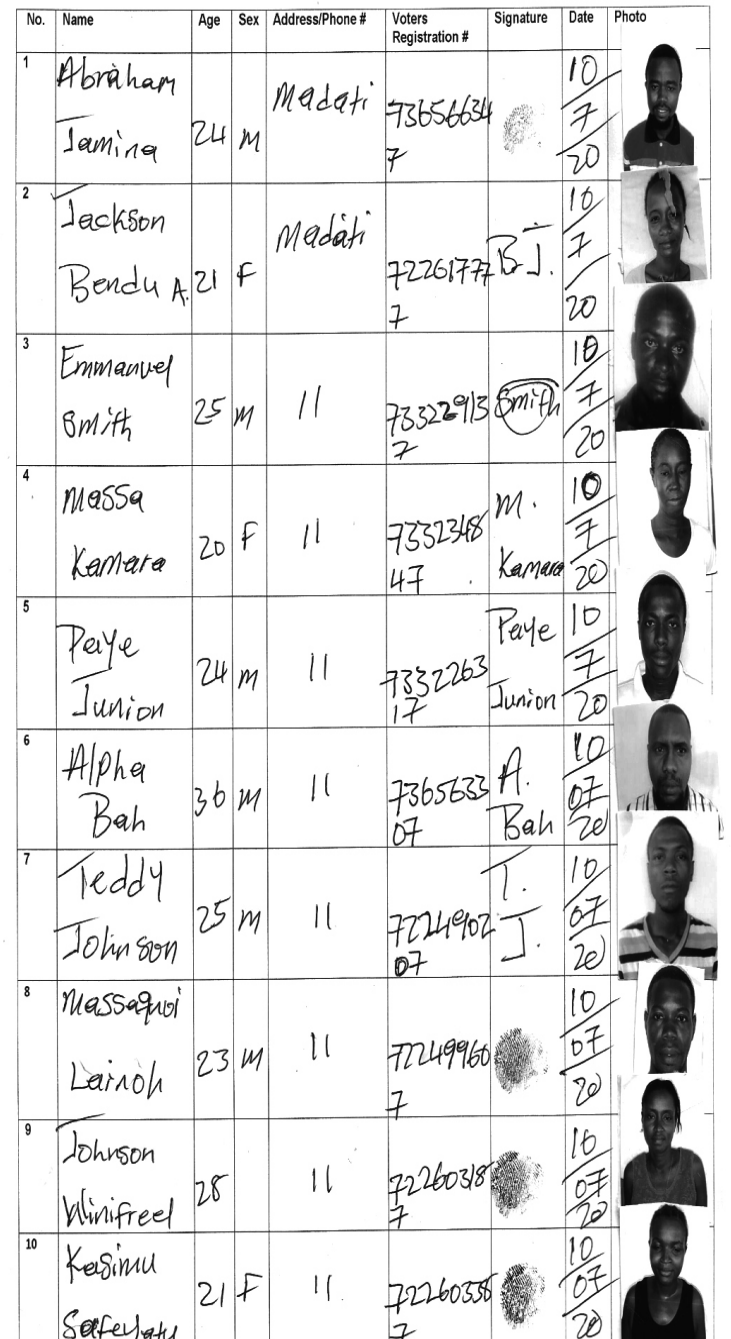 No. Name Age Sex Address/Phone # Voters Registration # Signature Date Photo
1 Abraham Jamina 24 M Madati 736566347 10/7/20
2 Jackson Bendu A. 21 F Madati 722617777 B J. 10/7/20
3 Emmanuel Smith 25 M 11 733229137 Smith 10/7/20
4 Massa Kamara 20 F 11 733234847 M. Kamara 10/7/20
5 Paye Junion 24 M 11 733226317 Paye Junion 10/7/20
6 Alpha Bah 36 M 11 736563307 A. Bah 10/07/20
7 Teddy Johnson 25 M 11 722490207 T. J. 10/07/20
8 Massaquoi 23 M 11 722499607 10/07/20
9 Johnson Winifreel 28 11 722603187 10/07/20
10 Kasimu 21 F 11 722603387 10/07/20